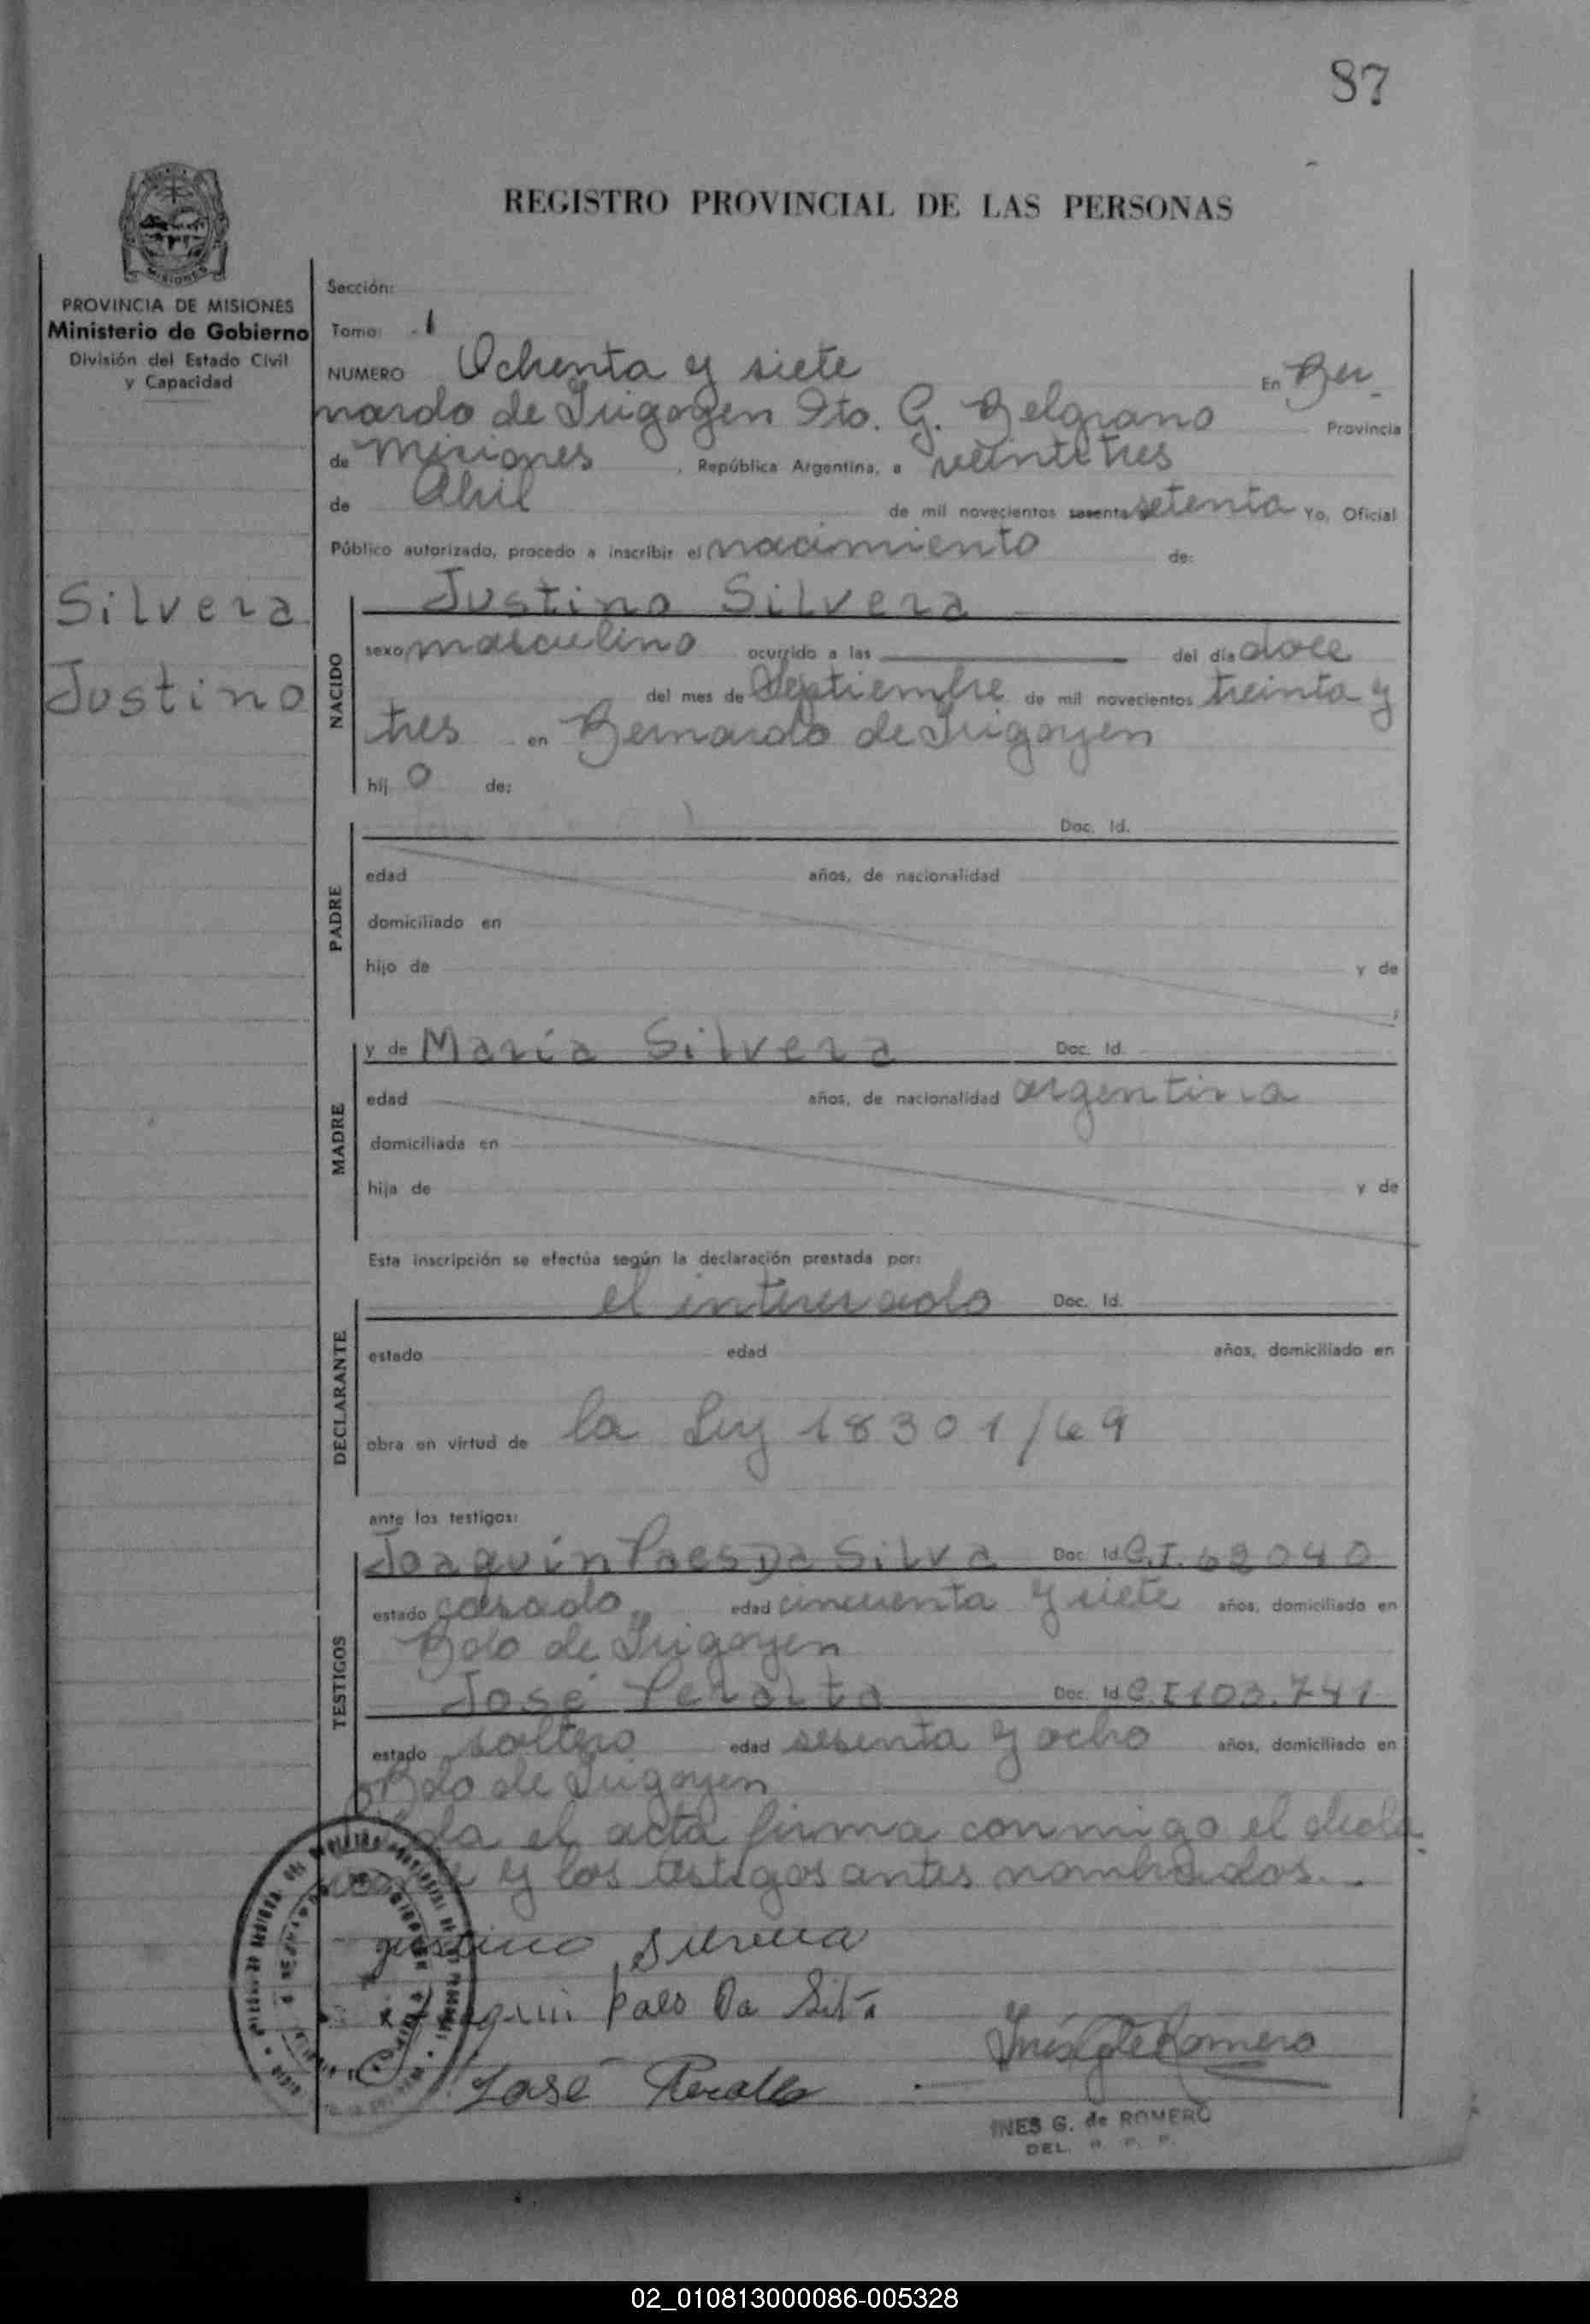 87
REGISTRO PROVINCIAL DE LAS PERSONAS
MISIONES
PROVINCIA DE MISIONES
Ministerio de Gobierno
División del Estado Civil
y Capacidad
Silvera
Justino
Sección:
Tomo: 1
NUMERO Ochenta y siete En Ber-
nardo de Irigoyen Dto. G. Belgrano Provincia
de Misiones, República Argentina, a veintitres
de Abril de mil novecientos sesenta setenta Yo, Oficial
Público autorizado, procedo a inscribir el nacimiento de:
NACIDO
Justino Silvera
sexo masculino ocurrido a las del día doce
del mes de Septiembre de mil novecientos treinta y
tres en Bernardo de Irigoyen
hij o de:
PADRE
Doc. Id.
edad años, de nacionalidad
domiciliado en
hijo de y de
MADRE
y de María Silvera Doc. Id.
edad años, de nacionalidad argentina
domiciliada en
hija de y de
Esta inscripción se efectúa según la declaración prestada por:
DECLARANTE
el interesado Doc. Id.
estado edad años, domiciliado en
obra en virtud de la Ley 18301/69
ante los testigos:
TESTIGOS
Joaquín Paes Da Silva Doc. Id. C.I. 62040
estado casado edad cincuenta y siete años, domiciliado en
Bdo de Irigoyen
José Peralta Doc. Id. C.I 103.741
estado soltero edad sesenta y ocho años, domiciliado en
Bdo de Irigoyen
el acta firma conmigo el decla-
y los testigos antes nombrados.-
justino Silvera
Paes Da Silva
José Peralta
Inés G de Romero
INES G. de ROMERO
DEL. R. P. P.
02_010813000086-005328